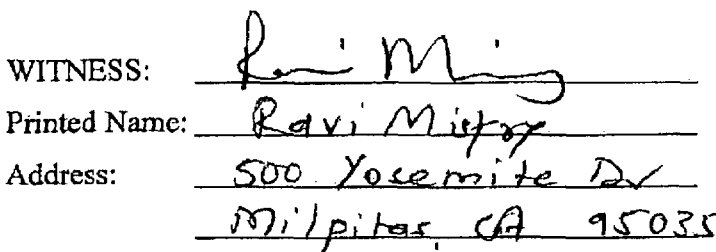 WITNESS: Ravi Mistry
Printed Name: Ravi Mistry
Address: 500 Yosemite Dr
Milpitas, CA 95035